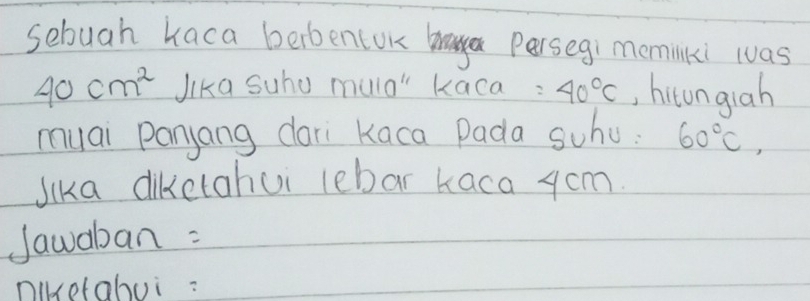 Sebuah kaca berbentuk persegi memiliki luas
40 cm² Jika suhu mula" kaca = 40°C, hitunglah
muai panjang dari kaca pada suhu : 60°C,
Jika diketahui lebar kaca 4 cm.
Jawaban =
Diketahui :